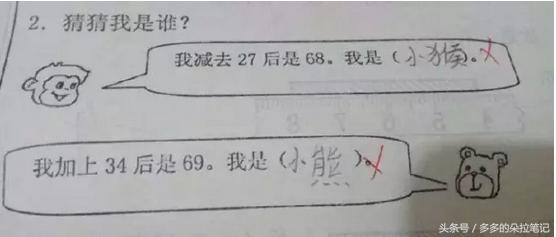 2. 猜猜我是谁?
我减去 27 后是 68。我是(小猴)。
我加上 34 后是 69。我是(小熊)。
4 5 6 7 8
头条号 / 多多的朵拉笔记